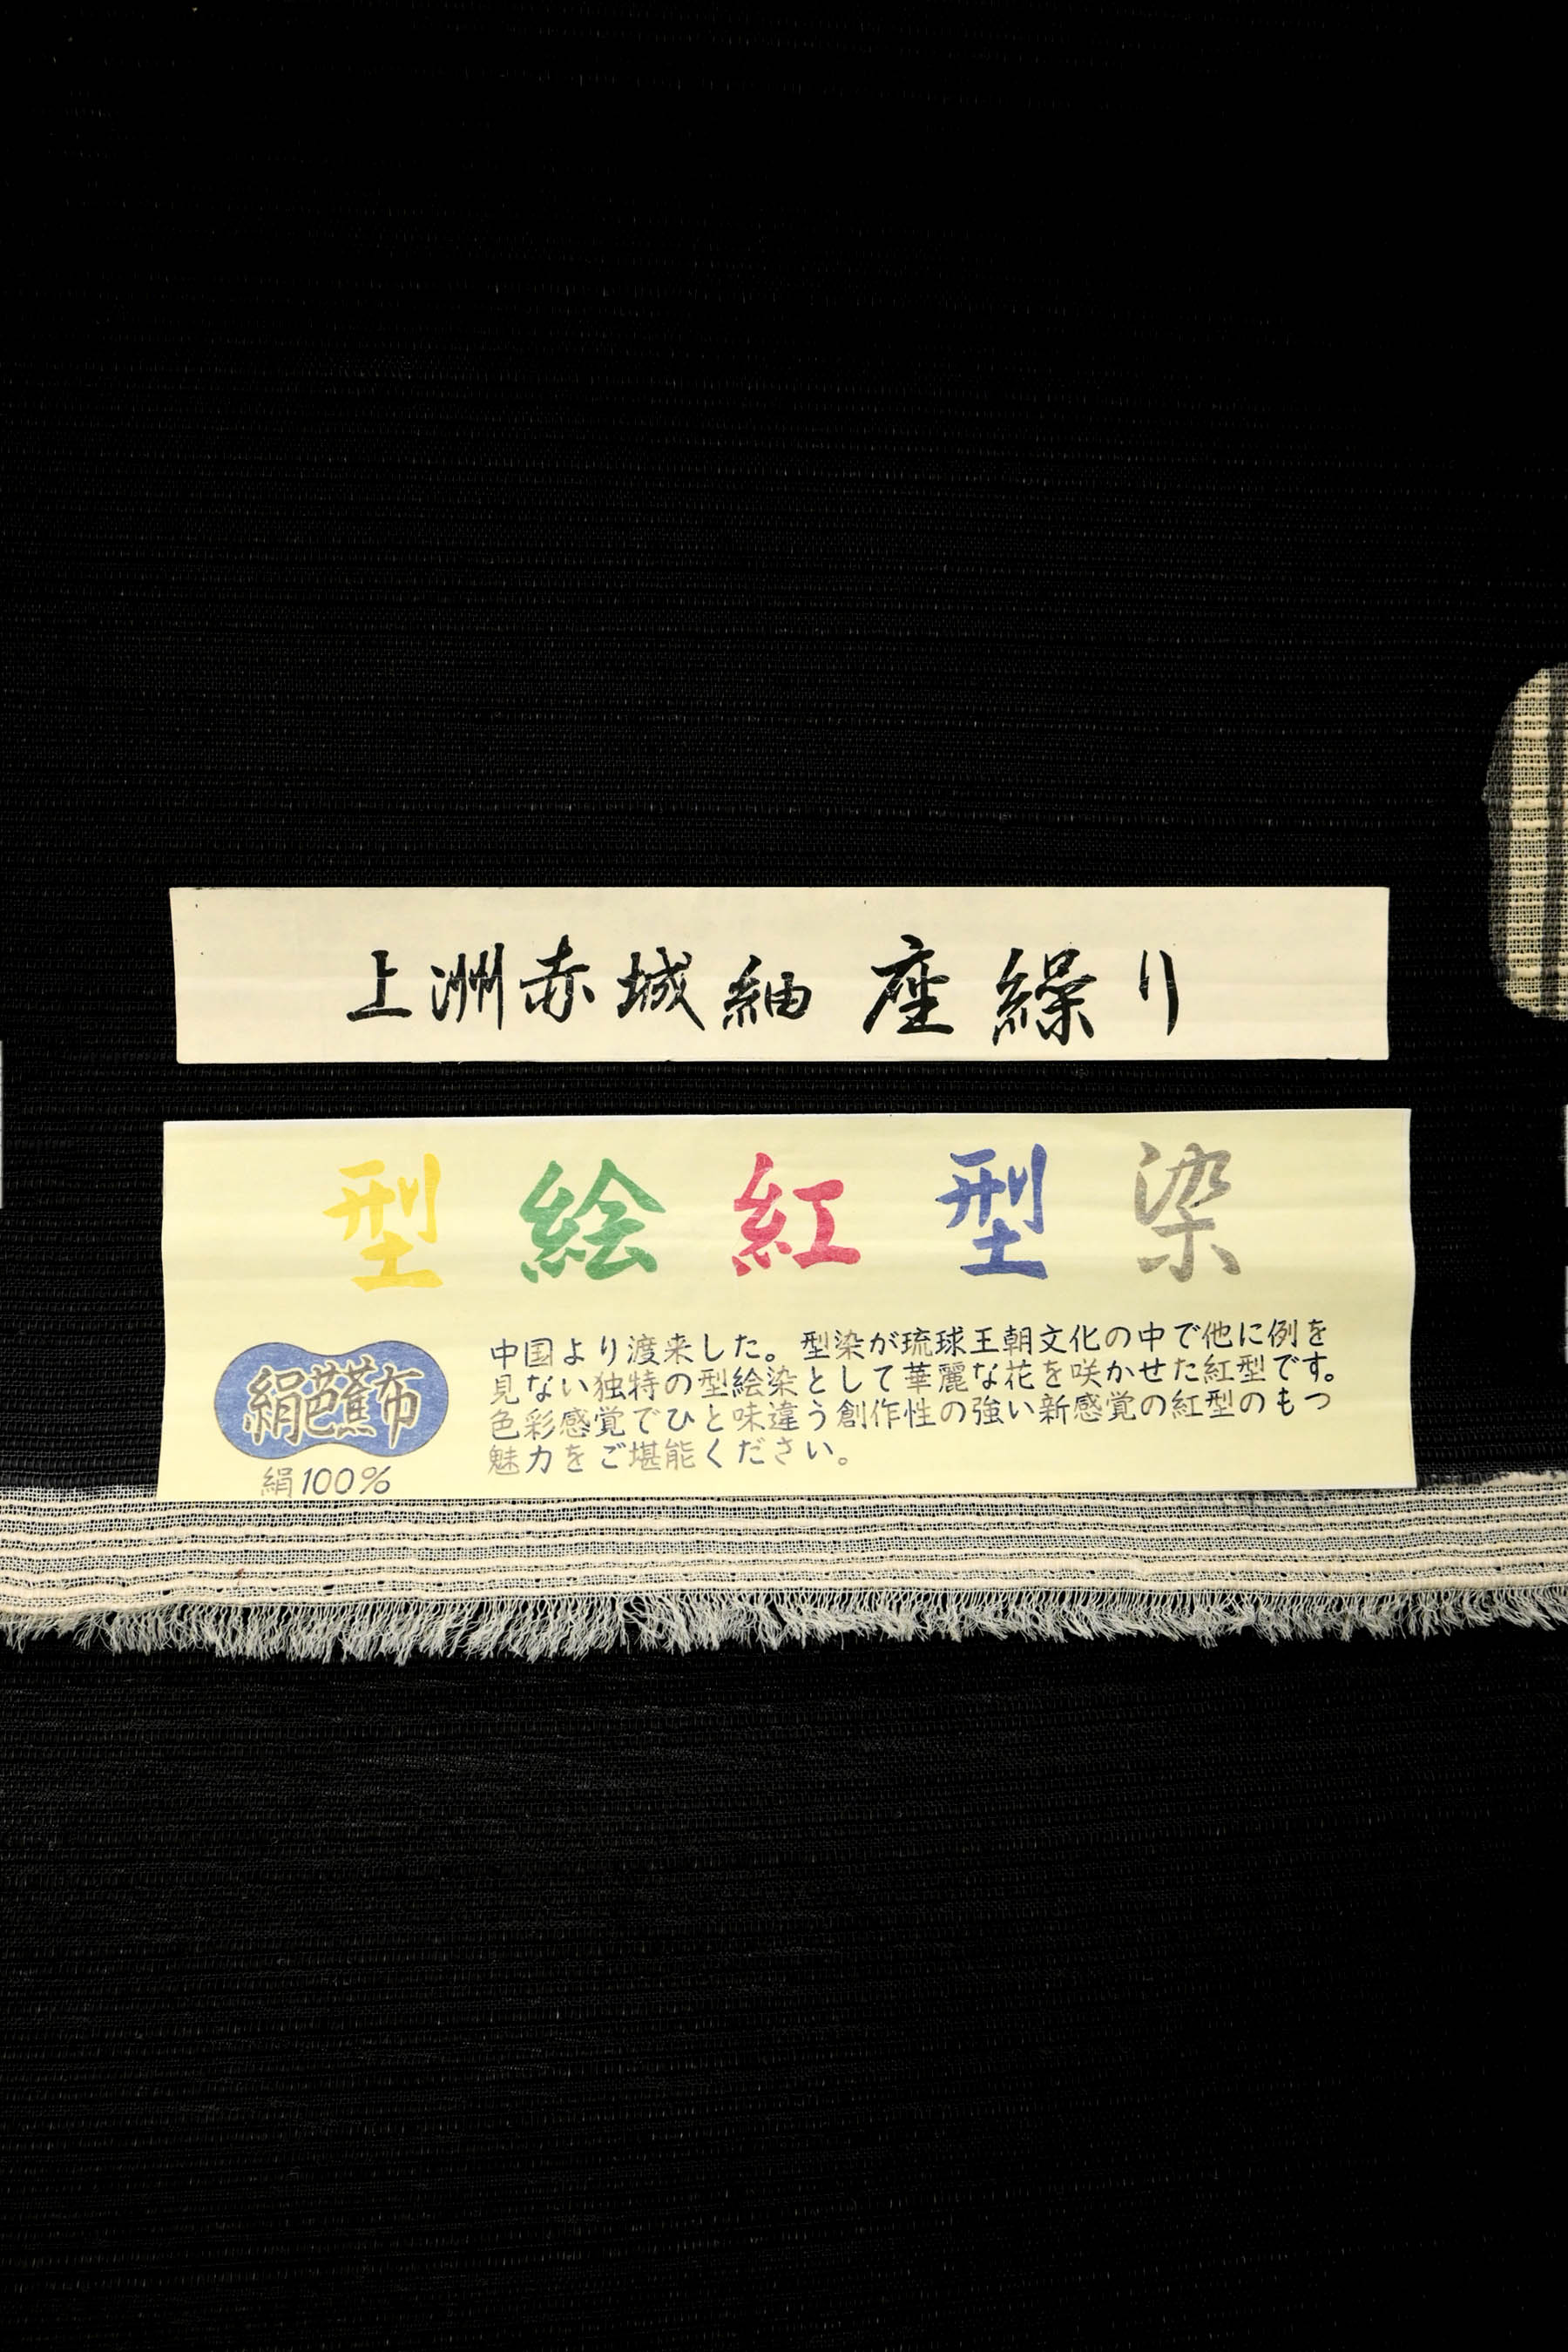 上洲赤城紬 座繰り
型絵紅型染
絹芭蕉布
絹100%
中国より渡来した。型染が琉球王朝文化の中で他に例を
見ない独特の型絵染として華麗な花を咲かせた紅型です。
色彩感覚でひと味違う創作性の強い新感覚の紅型のもつ
魅力をご堪能ください。